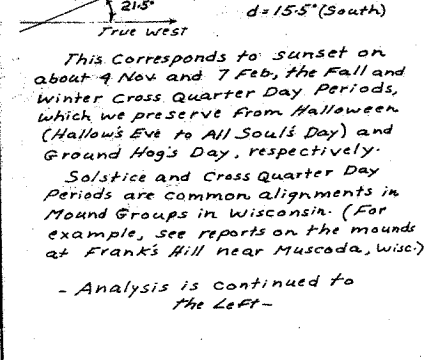 21.5°
True West
d = 15.5° (South)
This Corresponds to sunset on
about 4 Nov and 7 Feb, the Fall and
Winter Cross Quarter Day Periods,
which we preserve from Halloween
(Hallow's Eve to All Soul's Day) and
Ground Hog's Day, respectively.
Solstice and Cross Quarter Day
Periods are common alignments in
Mound Groups in Wisconsin. (For
example, see reports on the mounds
at Frank's Hill near Muscoda, Wisc.)
- Analysis is continued to
the Left -